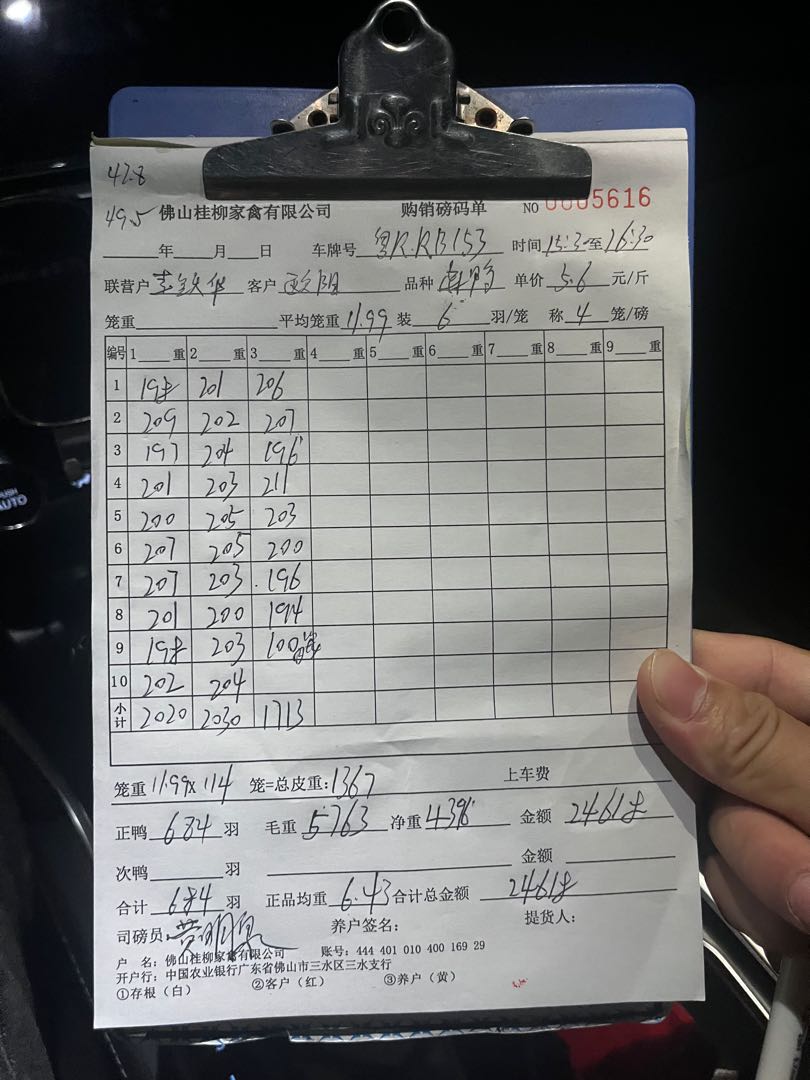 47.8
49.5 佛山桂柳家禽有限公司 购销磅码单 NO 0005616
年 月 日 车牌号 粤R.RB153 时间 15:30 至 16:30
联营户 客户 欧阳 品种 单价 5.6 元/斤
笼重 平均笼重 11.99 装 6 羽/笼 称 4 笼/磅
编号 1 重 2 重 3 重 4 重 5 重 6 重 7 重 8 重 9 重
1 198 201 206
2 209 202 207
3 197 204 196
4 201 203 211
5 200 205 203
6 207 205 200
7 207 203 196
8 201 200 194
9 198 203 100
10 202 204
小计 2020 2030 1713
笼重 11.99x114 笼=总皮重: 1367 上车费
正鸭 684 羽 毛重 5763 净重 4396 金额 24618
次鸭 羽 金额
合计 684 羽 正品均重 6.43 合计总金额 24618
司磅员: 养户签名: 提货人:
户 名: 佛山桂柳家禽有限公司 账号: 444 401 010 400 169 29
开户行: 中国农业银行广东省佛山市三水区三水支行
①存根（白） ②客户（红） ③养户（黄）
PUSH
AUTO